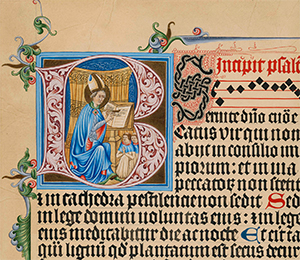 Incipit psal
Seruite dño
Beatus vir qui non
abijt in consilio im
piorum: et in uia
peccatoꝝ non stetit
in cathedra pestilencie non sedit Sed
in lege domini voluntas eius: in lege
eius meditabitur die ac nocte Et erit ta
lignū qd plantatum est secus decurs